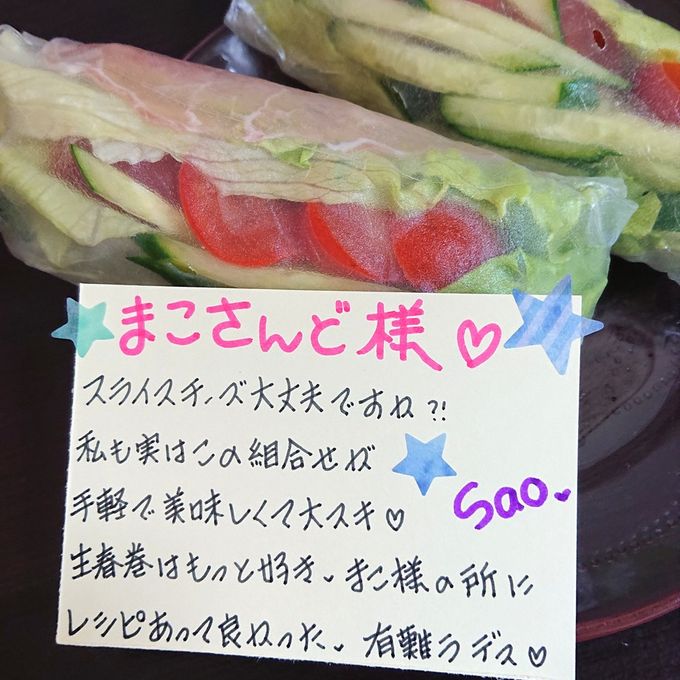 まこさんど様♡
スライスチーズ大丈夫ですね⁈
私も実はこの組合せが
手軽で美味しくて大スキ♡
Sao.
生春巻はもっと好き、まこ様の所に
レシピあって良かった、有難うデス♡